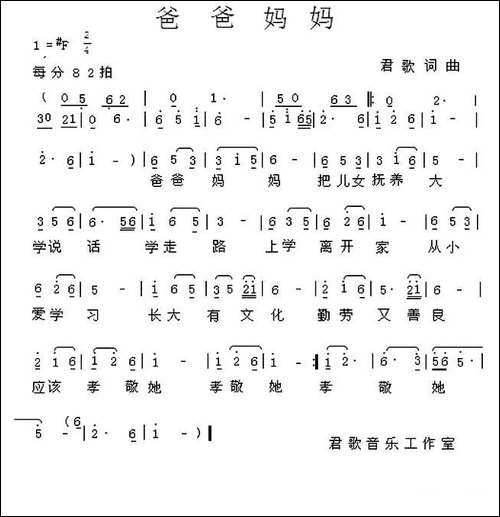 爸爸妈妈
1=#F 2/4
君歌 词曲
每分82拍
( 0 5 6 2 | 0 1· | 5 0 6 3 |: 0 2· |
3 0 2 1 | 0 6· | 6 5 i | 6 - | 5 i 6 5 | 2· 6 | i 2 6 | i - |
2· 6 | i - ) | 6 5 3 | 3 i 5 | 6 - | 6 5 3 | 3 i 6 | 5 - |
爸爸 妈 妈 把儿女抚养 大
3 5 6 | 6· 5 6 | i 6 5 | 3 - | 6 3 5 | 6 2 6 | i - | 6 5 3 |
学说 话 学走 路 上学 离开 家 从小
6 2 6 | 5 - | i 6 5 | 3 5 2 i | 6 - | 2 i 6 | 5· 2 i | 6 - |
爱学 习 长大 有文化 勤劳 又善良
2 i 6 | i 2 6 | i - | i 2 6 | i - :| i 2· | 6· 3 | 5 6 5· |
应该 孝敬她 孝敬她 孝 敬 她
5 - (6 | 2· 6 | i - ) ‖
君歌音乐工作室